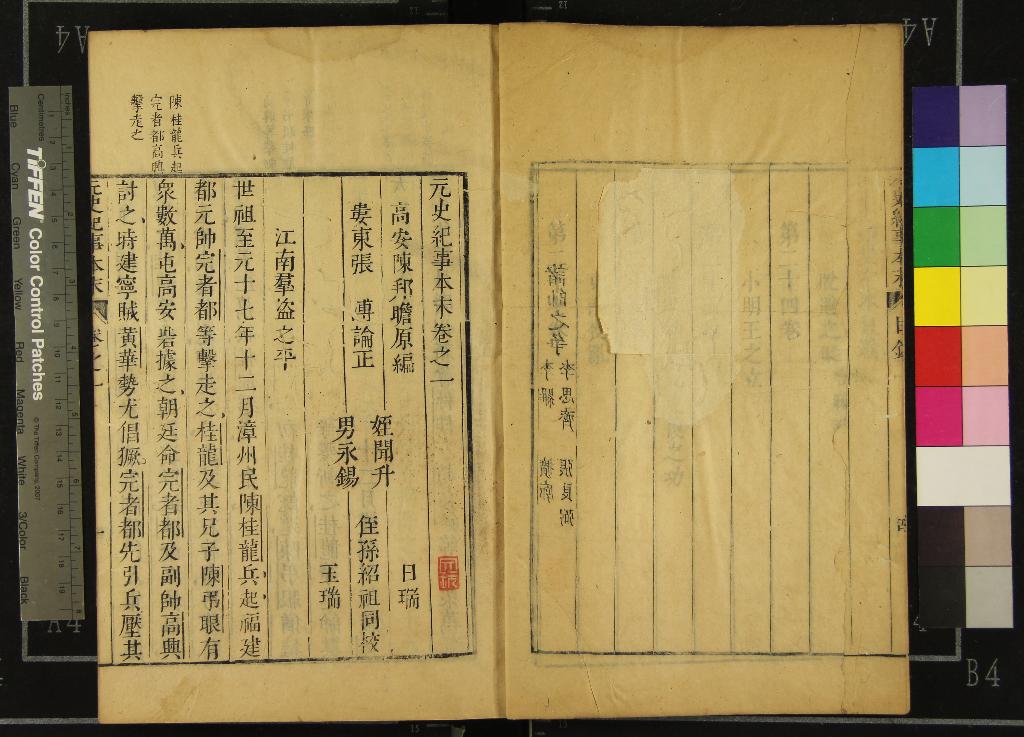 目錄
諸帥之爭
李思齊 張良弼
李羅 擴廓
元史紀事本末卷之一
高安陳邦瞻原編
婁東張溥論正
姪聞升
男永錫
日瑞
侄孫紹祖同校
玉瑞
江南羣盜之平
世祖至元十七年十二月漳州民陳桂龍兵起福建
都元帥完者都等擊走之桂龍及其兄子陳弔眼有
衆數萬屯高安砦據之朝廷命完者都及副帥高興
討之時建寧賊黃華勢尤倡獗完者都先引兵壓其
元史紀事本末 卷之一 一
陳桂龍兵起
完者都高興
擊走之
TIFFEN Color Control Patches
© The Tiffen Company, 2007
Centimetres
Inches
Blue
Cyan
Green
Yellow
Red
Magenta
White
3/Color
Black
A4
A4
A4
B4